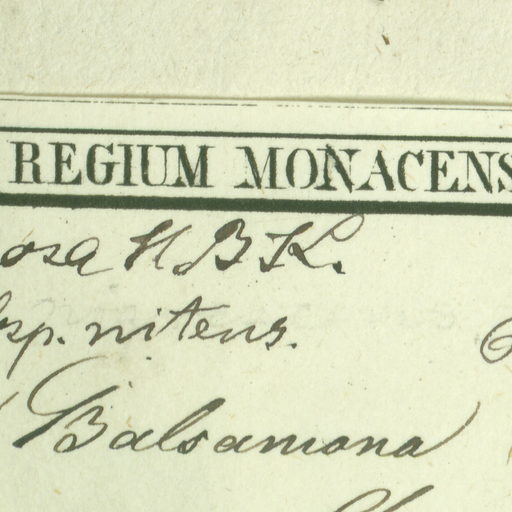 REGIUM MONACENS
osa H B K.
sp. nitens.
Balsamona